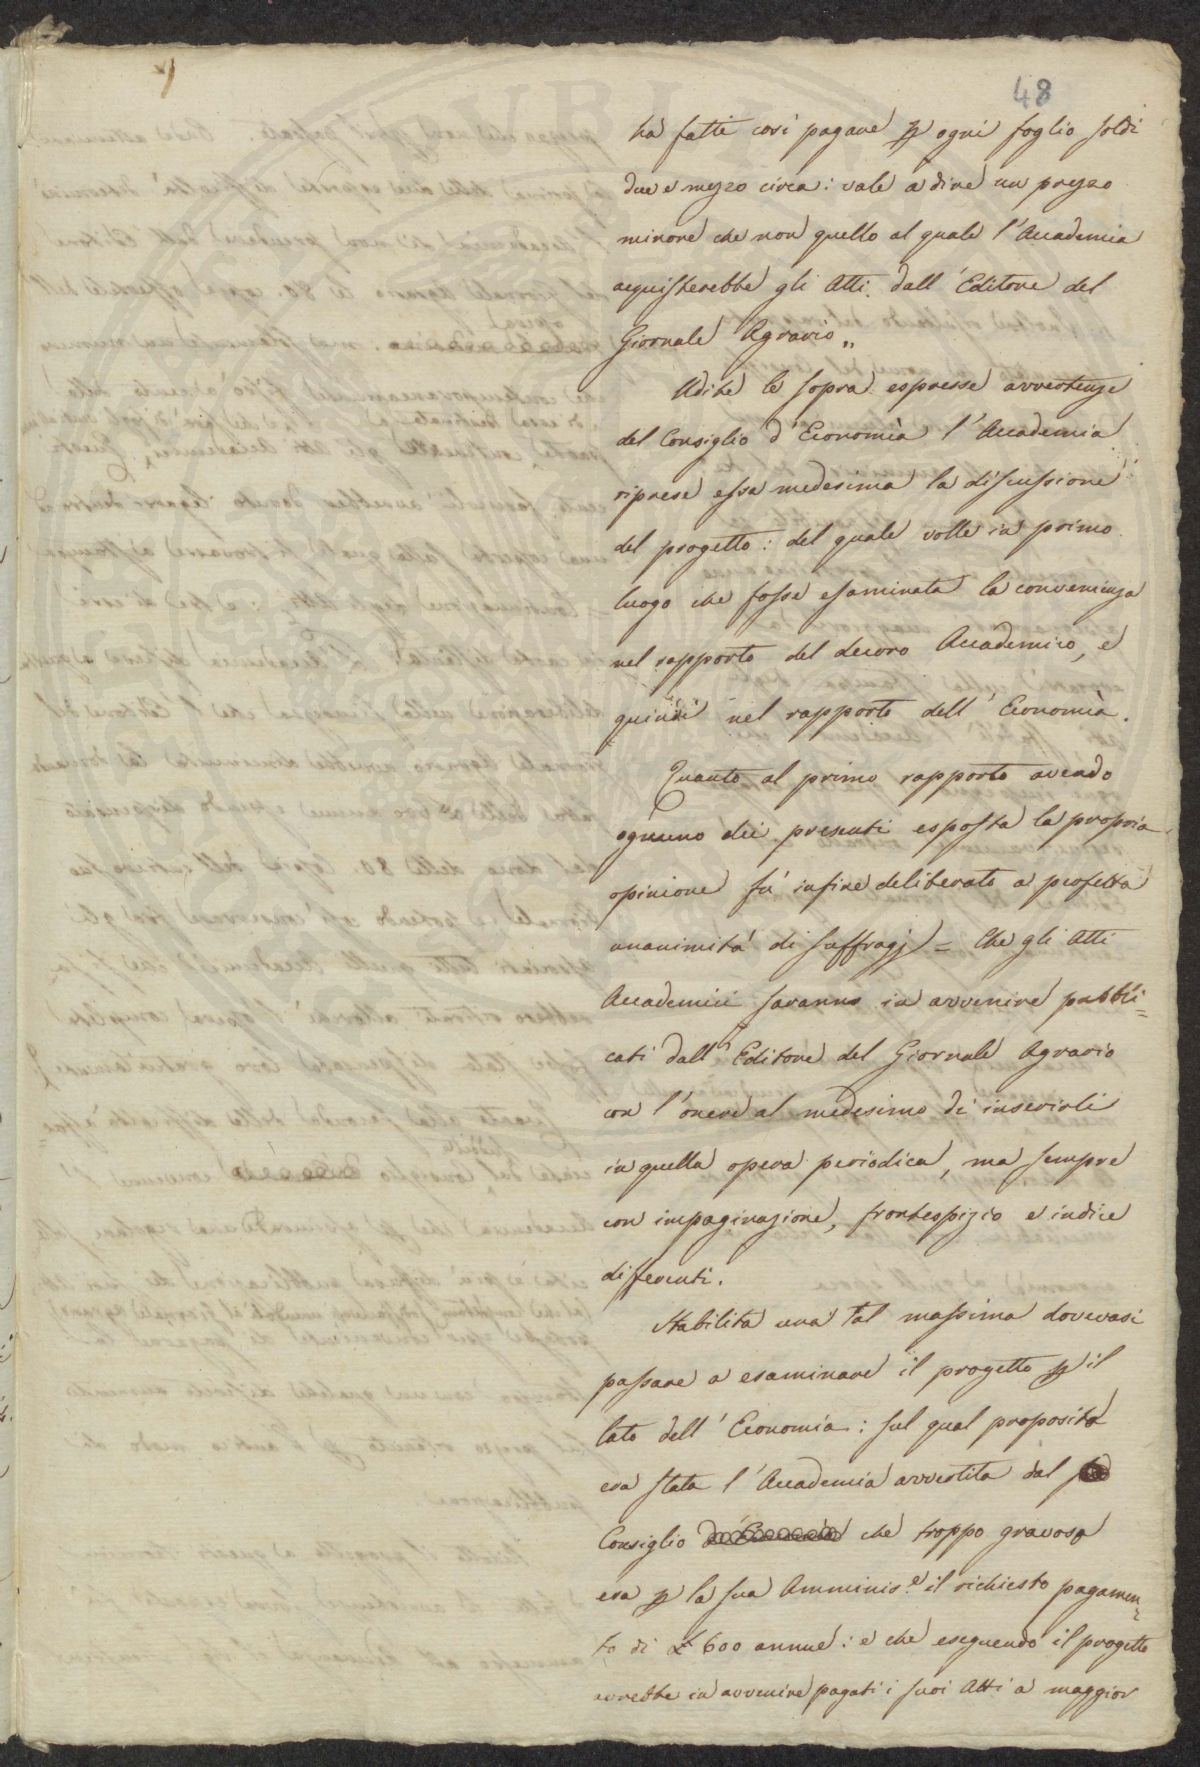 48
ha fatti così pagare p ogni foglio soldi
due e mezzo circa: vale a dire un prezzo
minore che non quello al quale l'Accademia
acquisterebbe gli Atti dall'Editore del
Giornale Agrario„
Udite le sopra espresse avvertenze
del Consiglio d'Economìa l'Accademia
riprese essa medesima la discussione
del progetto: del quale volle in primo
luogo che fosse esaminata la convenienza
nel rapporto del decoro Accademico, e
quindi nel rapporto dell'Economìa.
Quanto al primo rapporto avendo
ognuno dei presenti esposta la propria
opinione fù infine deliberato a perfetta
unanimità di suffragj = Che gli Atti
Accademici saranno in avvenire pubbli=
cati dall'Editore del Giornale Agrario
con l'onere al medesimo di inserirli
in quella opera periodica, ma sempre
con impaginazione, frontespizio e indice
differenti.
Stabilita una tal massima dovevasi
passare a esaminare il progetto p il
lato dell'Economia: sul qual proposito
era stata l'Accademia avvertita dal
Consiglio d'Economia che troppo gravoso
era p la sua Amminis.e il richiesto pagamen=
to di £ 600 annue: e che eseguendo il progetto
avrebbe in avvenire pagati i suoi Atti a maggior